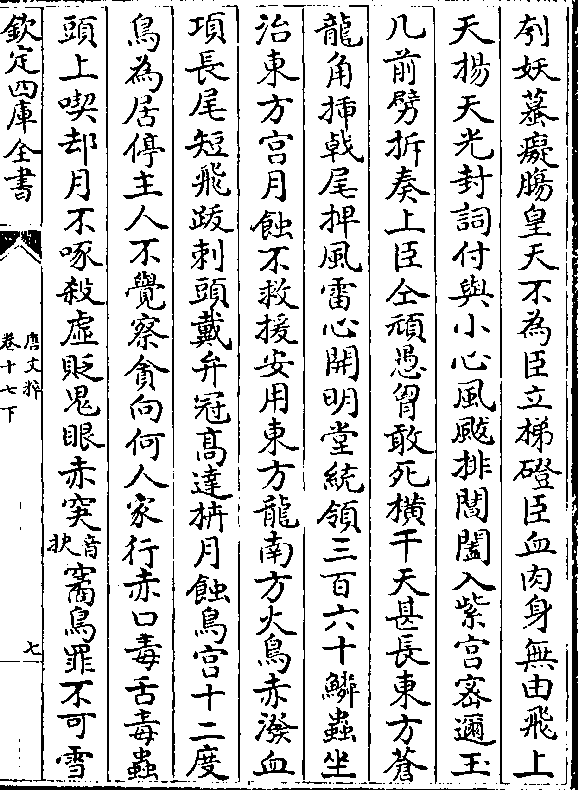 刳妖蟇癡膓皇天不為臣立梯磴臣血肉身無由飛上
天揚天光封詞付與小心風颷排閶闔入紫宫宻邇玉
几前劈拆奏上臣仝頑愚胷敢死横干天甚長東方蒼
龍角揷㦸尾捭風雷心開明堂統領三百六十鱗蟲坐
治東方宫月蝕不救援安用東方龍南方火鳥赤潑血
項長尾短飛跋刺頭戴弁冠髙達枿月蝕鳥宫十二度
鳥為居停主人不覺察貪向何人家行赤口毒舌毒蟲
頭上喫却月不啄殺虚貶鬼眼赤突音抉窬鳥罪不可雪
欽定四庫全書
唐文粹
卷十七下
七